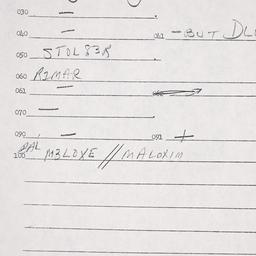 030 —
040 — 041 — BUT DL
050 STOL83R
060 RIMAR
061 —
070 —
090 — 091 +
100 MBLOXE // MALOXIM